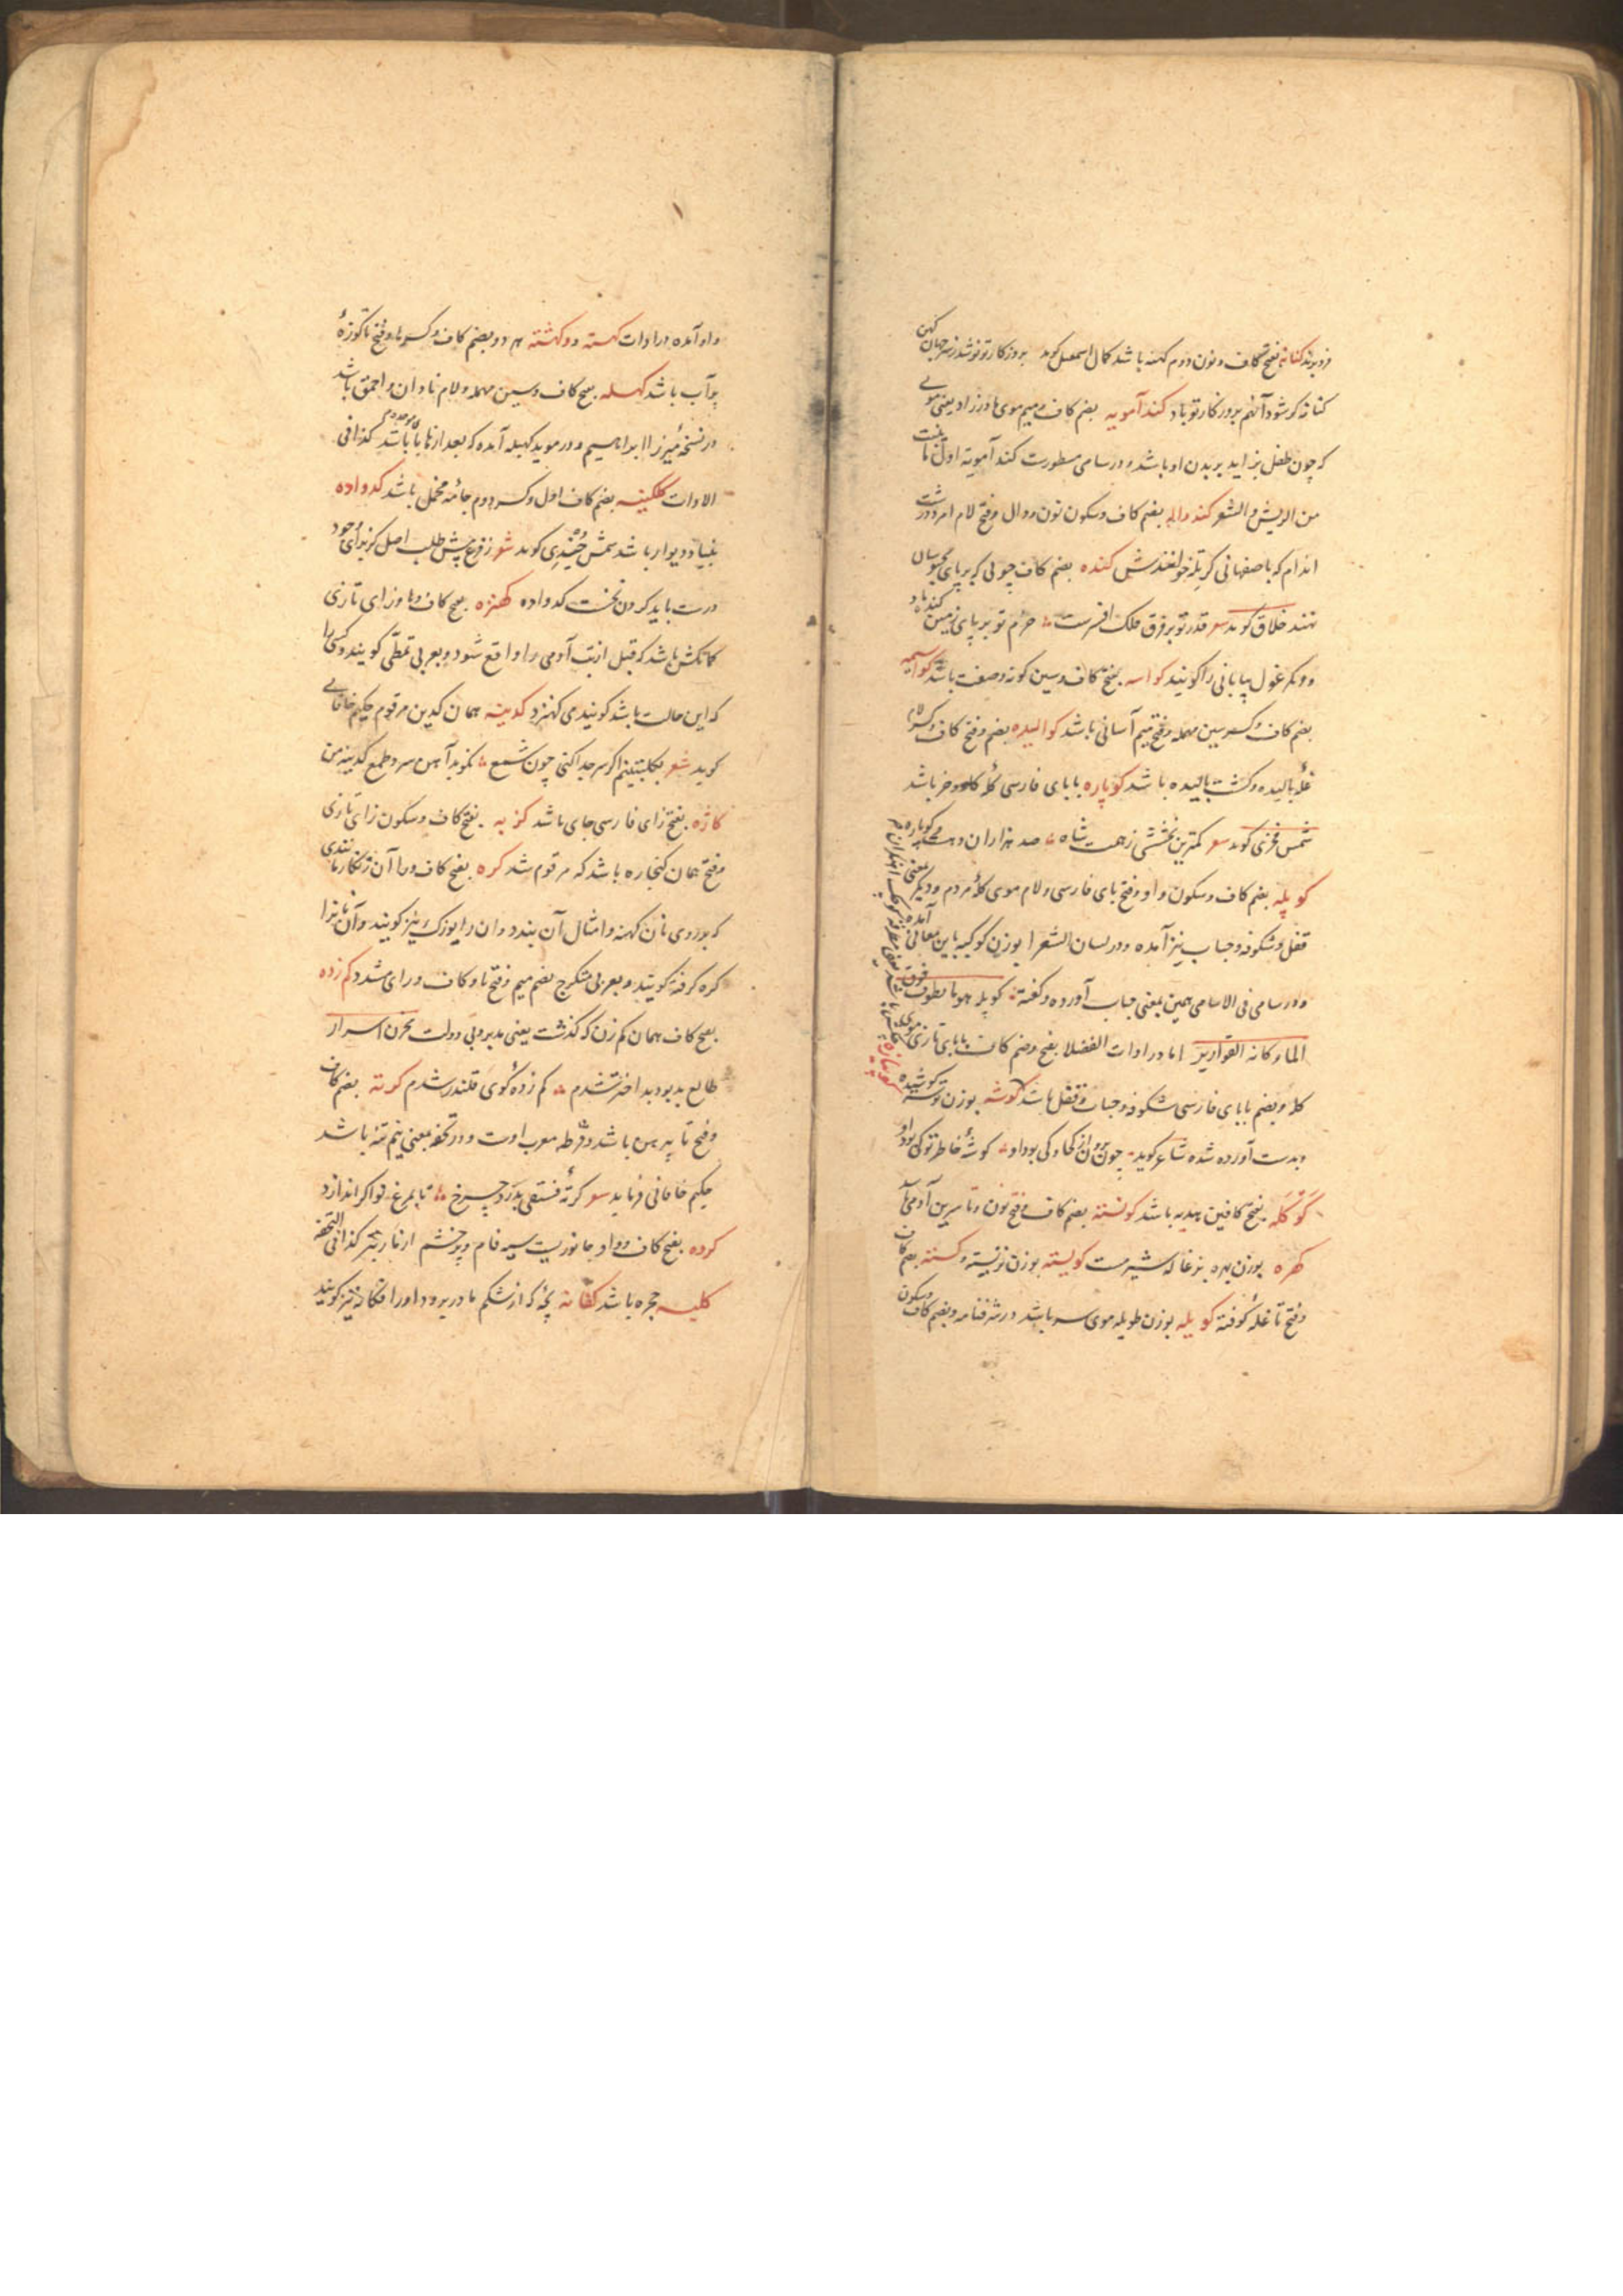 فرو برند کنانه بفتح کاف و نون دوم کهنه باشد کمال اسمعیل کوید بروزکار تو نو شد ز سر جهان کهن
کنانه کر شود آنهم بروزکار تو باد کند آمویه بضم کاف و میم موی مادرزاد یعنی مویی
که چون طفل بزاید بر بدن او باشد و در سامی مسطورست کند آمویه اول ما ینبت
من الریش و الشعر کنده واله بضم کاف و سکون نون و دال و فتح لام امرد درشت
اندام که باصفهانی خوانندش کنده بضم کاف چوبی که بر پای محبوسان
نهند خلاق کوید شعر قدر تو بر فرق فلک افسرست حزم تو بر پای زمین کنده باد
و دیکر غول بیابانی را کویند کواسه بفتح کاف و سین کونه و صفت باشد کواسیمه
بضم کاف و کسر سین مهمله و فتح میم آسانی باشد کوالیده بضم و فتح کاف و کسر لام
غله بالیده و کشت بالیده باشد کوپاره با بای فارسی کله کاو و خر باشد
شمس فخری کوید شعر کمترین بخششی ز همت شاه صد هزاران کوپاره
کوپله بضم کاف و سکون واو و فتح بای فارسی و لام موی کله مردم و دیکر بمعنی
قفل و شکوفه و حباب نیز آمده و در لسان الشعرا بوزن کوکبه باین معانی آمده
و در سامی فی الاسامی همین بمعنی حباب آورده و کفته کوپله هو ما یطوف فوق
الماء کانه القواریر اما در ادات الفضلا بفتح و ضم کاف با بای تازی موی
کله و بضم با بای فارسی شکوفه و حباب و قفل باشد کوشه بوزن توشه کوشیده
و بدست آورده شده شاعر کوید چون برون از کجا و کی بود او کوشه خاطر تو کی بود او
کوکله بفتح کافین هدهد باشد کونسته بضم کاف و فتح نون و تا سرین آدمی باشد
کهره بوزن بهره بزغاله شیرمست کویسته بوزن نزیسته و کسته بضم کاف
و فتح تا غله کوفته کویله بوزن طویله موی سر باشد در شرفنامه و بضم کاف و سکون
واو آمده در ادات کهسته و کهشته هر دو بضم کاف و کسر ها و فتح تا کوزه
پرآب باشد کهسله بفتح کاف و سین مهمله و لام نادان و احمق باشد
در نسخه میرزا ابراهیم و در موید کهبله آمده که بعد از ها بای موحده باشد کذا فی
الادات ککینه بضم کاف اول و کسر دوم جامه مخمل باشد کدواده
بنیاد دیوار باشد شمس خجندی کوید شعر ز فرع پیش طلب اصل کز برای خود
درست باید کردن نخست کدواده کهنزه بفتح کاف و ها و زای تازی
کمانکش باشد که قبل از تب آدمی را واقع شود و بعربی تمطی کویند و کسی را
که این حالت باشد کویند می کهنزد کدینه همان کدین مرقوم حکیم خاقانی
کوید شعر بکلبتینم اکر سر جدا کنی چون شمع نکوبد آهن سرد طمع کدینه من
کاژه بفتح زای فارسی جای باشد کزبه بفتح کاف و سکون زای تازی
و فتح همان کنجاره باشد که مرقوم شد کره بفتح کاف و را آن زنکار مانندی
که بر روی نان کهنه و امثال آن بندد و آن را بوزک نیز کویند و آن نانرا
کره کرفته کویند و بعربی متکرج بضم میم و فتح تا و کاف و رای مشدد کم زده
بفتح کاف همان کم زن که کذشت یعنی مدبر و بی دولت مخزن اسرار
طالع بد بود بد اختر شدم کم زده کوی قلندر شدم کرته بضم کاف
و فتح تا پیرهن باشد و قرطه معرب اوست و در تحفه بمعنی نیم تنه باشد
حکیم خاقانی فرماید شعر کرته فستقی بدرد چرخ تا بمرغ نواکر اندازد
کرده بفتح کاف و واو جانوریست سیه فام و پرخشم از مار بتر کذا فی التحفه
کلبه حجره باشد کفانه بچه که از شکم مادر برود او را افکانه نیز کویند